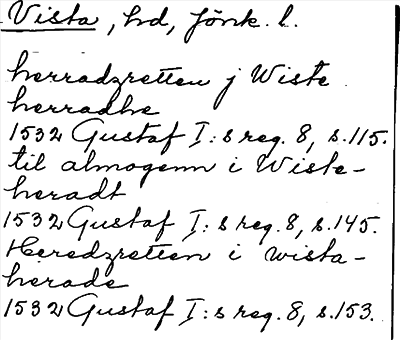 Vista, hd, Jönk. l.
herradzretten j Wiste
herradhe
1532 Gustaf I:s reg. 8, s.115.
til almogenn i Wiste-
heradt
1532 Gustaf I:s reg. 8, s.145.
Heredzretten i wista-
herade
1532 Gustaf I:s reg. 8, s.153.